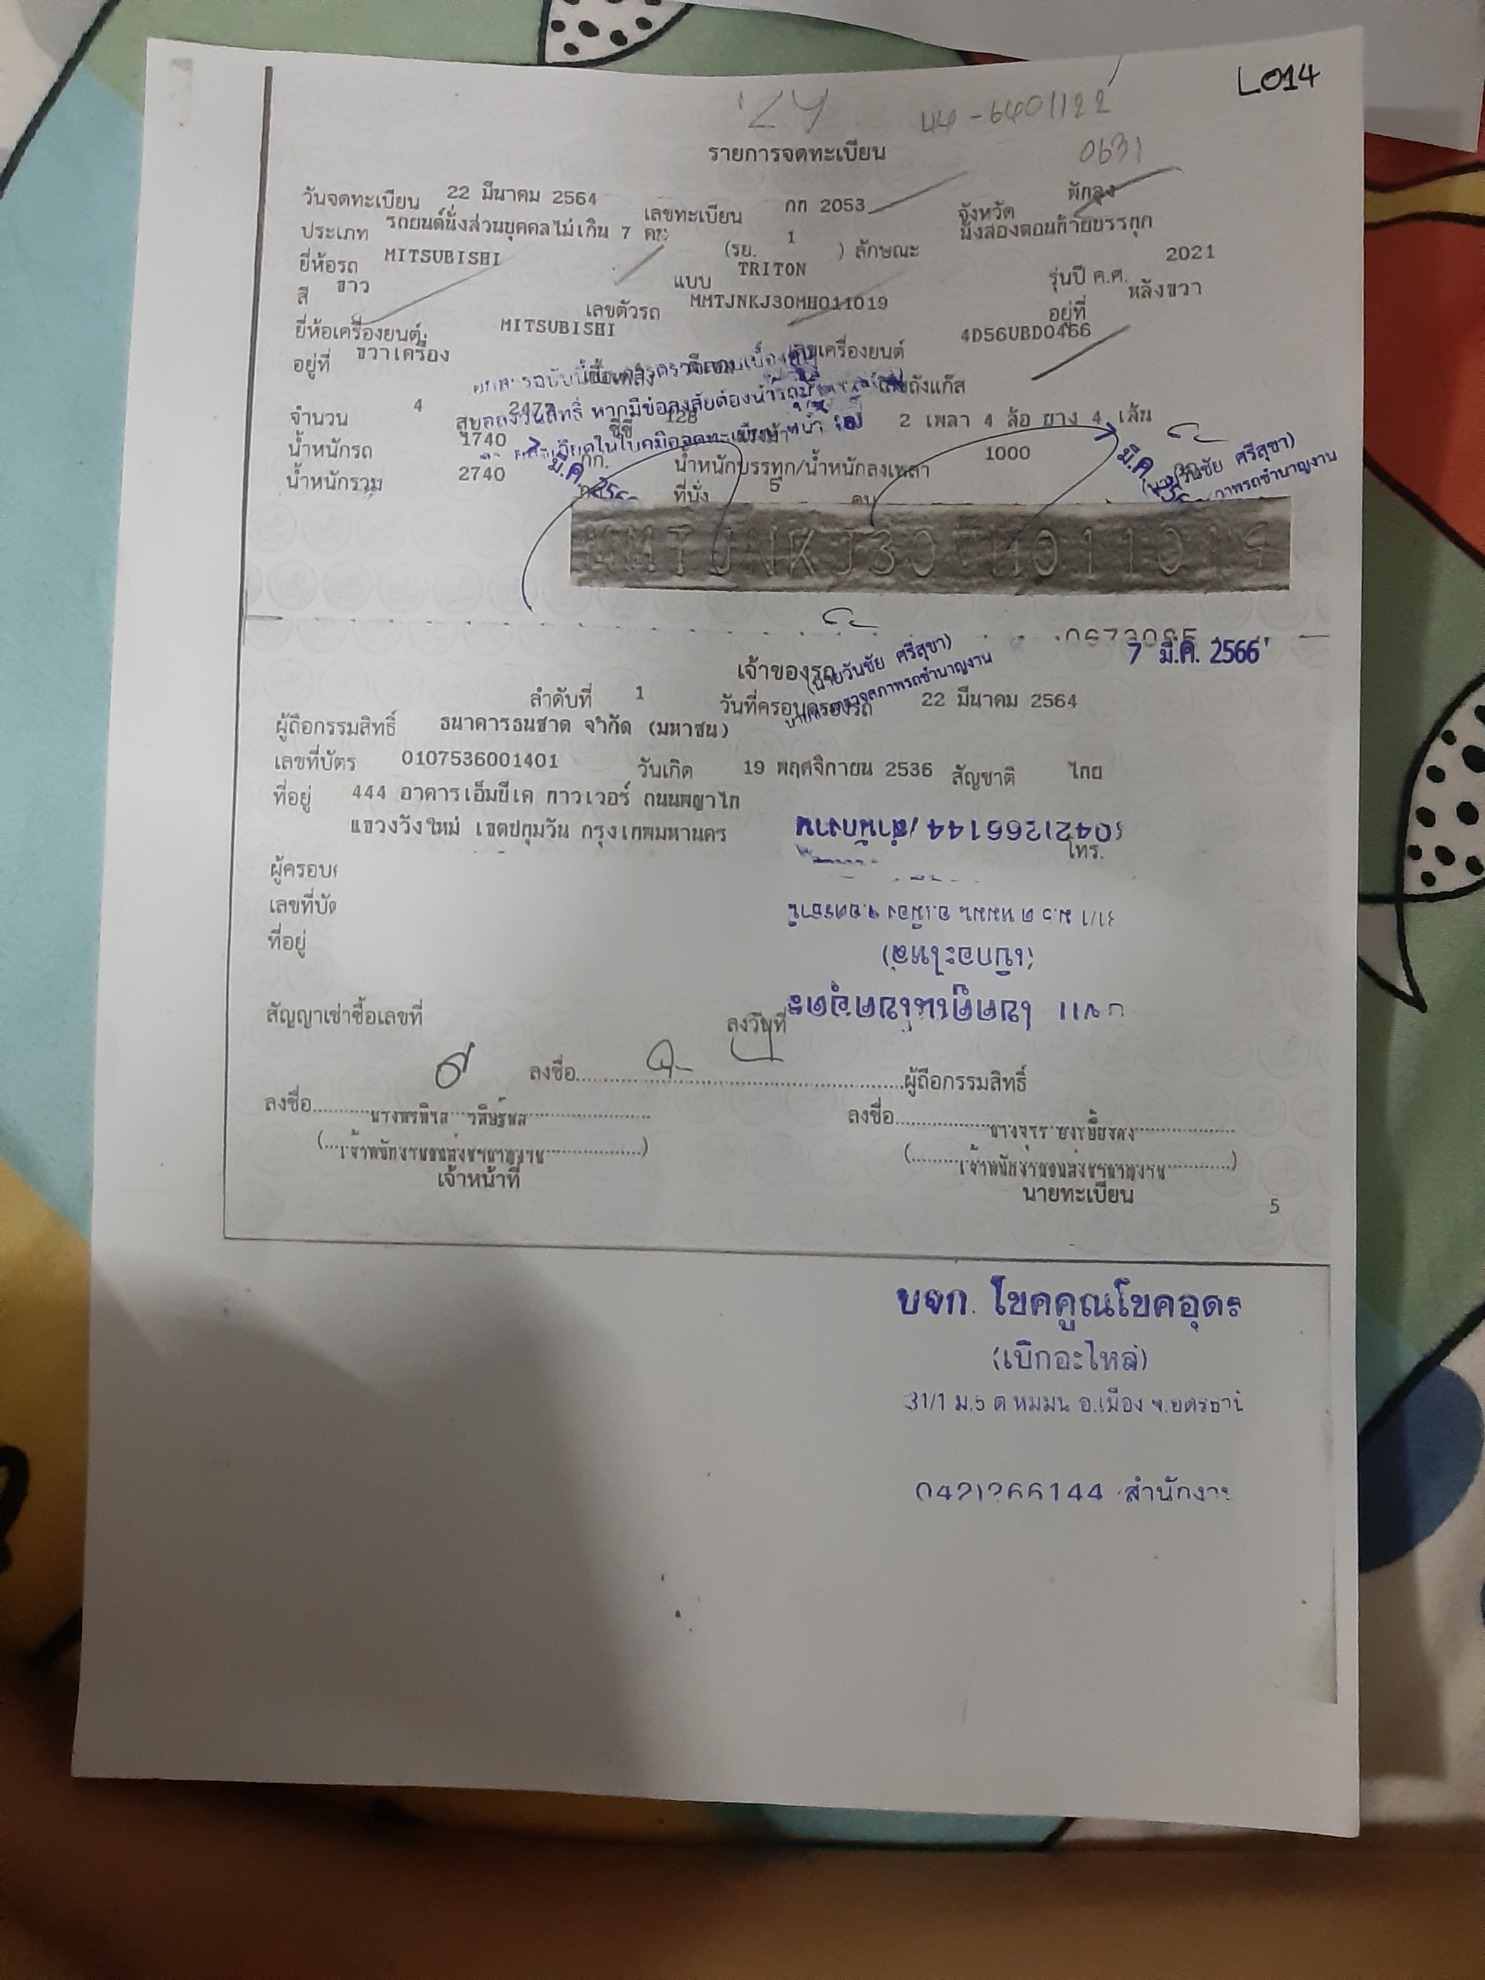 L014
44-6401122
รายการจดทะเบียน
0631
วันจดทะเบียน 22 มีนาคม 2564 เลขทะเบียน กท 2053 จังหวัด
ประเภท รถยนต์นั่งส่วนบุคคลไม่เกิน 7 คน (รย. 1 ) ลักษณะ นั่งสองตอนท้ายบรรทุก
ยี่ห้อรถ MITSUBISHI แบบ TRITON รุ่นปี ค.ศ. 2021
สี ขาว เลขตัวรถ MMTJNKJ30MH011019 อยู่ที่ หลังขวา
ยี่ห้อเครื่องยนต์ MITSUBISHI เลขเครื่องยนต์ 4D56UBD0466
อยู่ที่ ขวาเครื่อง เชื้อเพลิง เลขถังแก๊ส
จำนวน 4 2477 ซีซี 128 2 เพลา 4 ล้อ ยาง 4 เส้น
น้ำหนักรถ 1740 กก. น้ำหนักบรรทุก/น้ำหนักลงเพลา 1000
น้ำหนักรวม 2740 ที่นั่ง 5 คน
มี.ค.
(นายวันชัย ศรีสุขา)
7 มี.ค. 2566
เจ้าของรถ
(นายวันชัย ศรีสุขา)
นายตรวจสภาพรถชำนาญงาน
ลำดับที่ 1 วันที่ครอบครองรถ 22 มีนาคม 2564
ผู้ถือกรรมสิทธิ์ ธนาคารธนชาต จำกัด (มหาชน)
เลขที่บัตร 0107536001401 วันเกิด 19 พฤศจิกายน 2536 สัญชาติ ไทย
ที่อยู่ 444 อาคารเอ็มบีเค ทาวเวอร์ ถนนพญาไท
แขวงวังใหม่ เขตปทุมวัน กรุงเทพมหานคร
0421266144/สำนักงาน
โทร.
ผู้ครอบ
เลขที่บัต
ที่อยู่
(เบิกอะไหล่)
สัญญาเช่าซื้อเลขที่ ลงวันที่
โชคคูณโชคอุดร
ลงชื่อ ผู้ถือกรรมสิทธิ์
ลงชื่อ ลงชื่อ
เจ้าหน้าที่ นายทะเบียน
5
บจก. โชคคูณโชคอุดร
(เบิกอะไหล่)
31/1 ม.5 ต หมมน อ.เมือง จ.อุดรธานี
0421266144 สำนักงาน